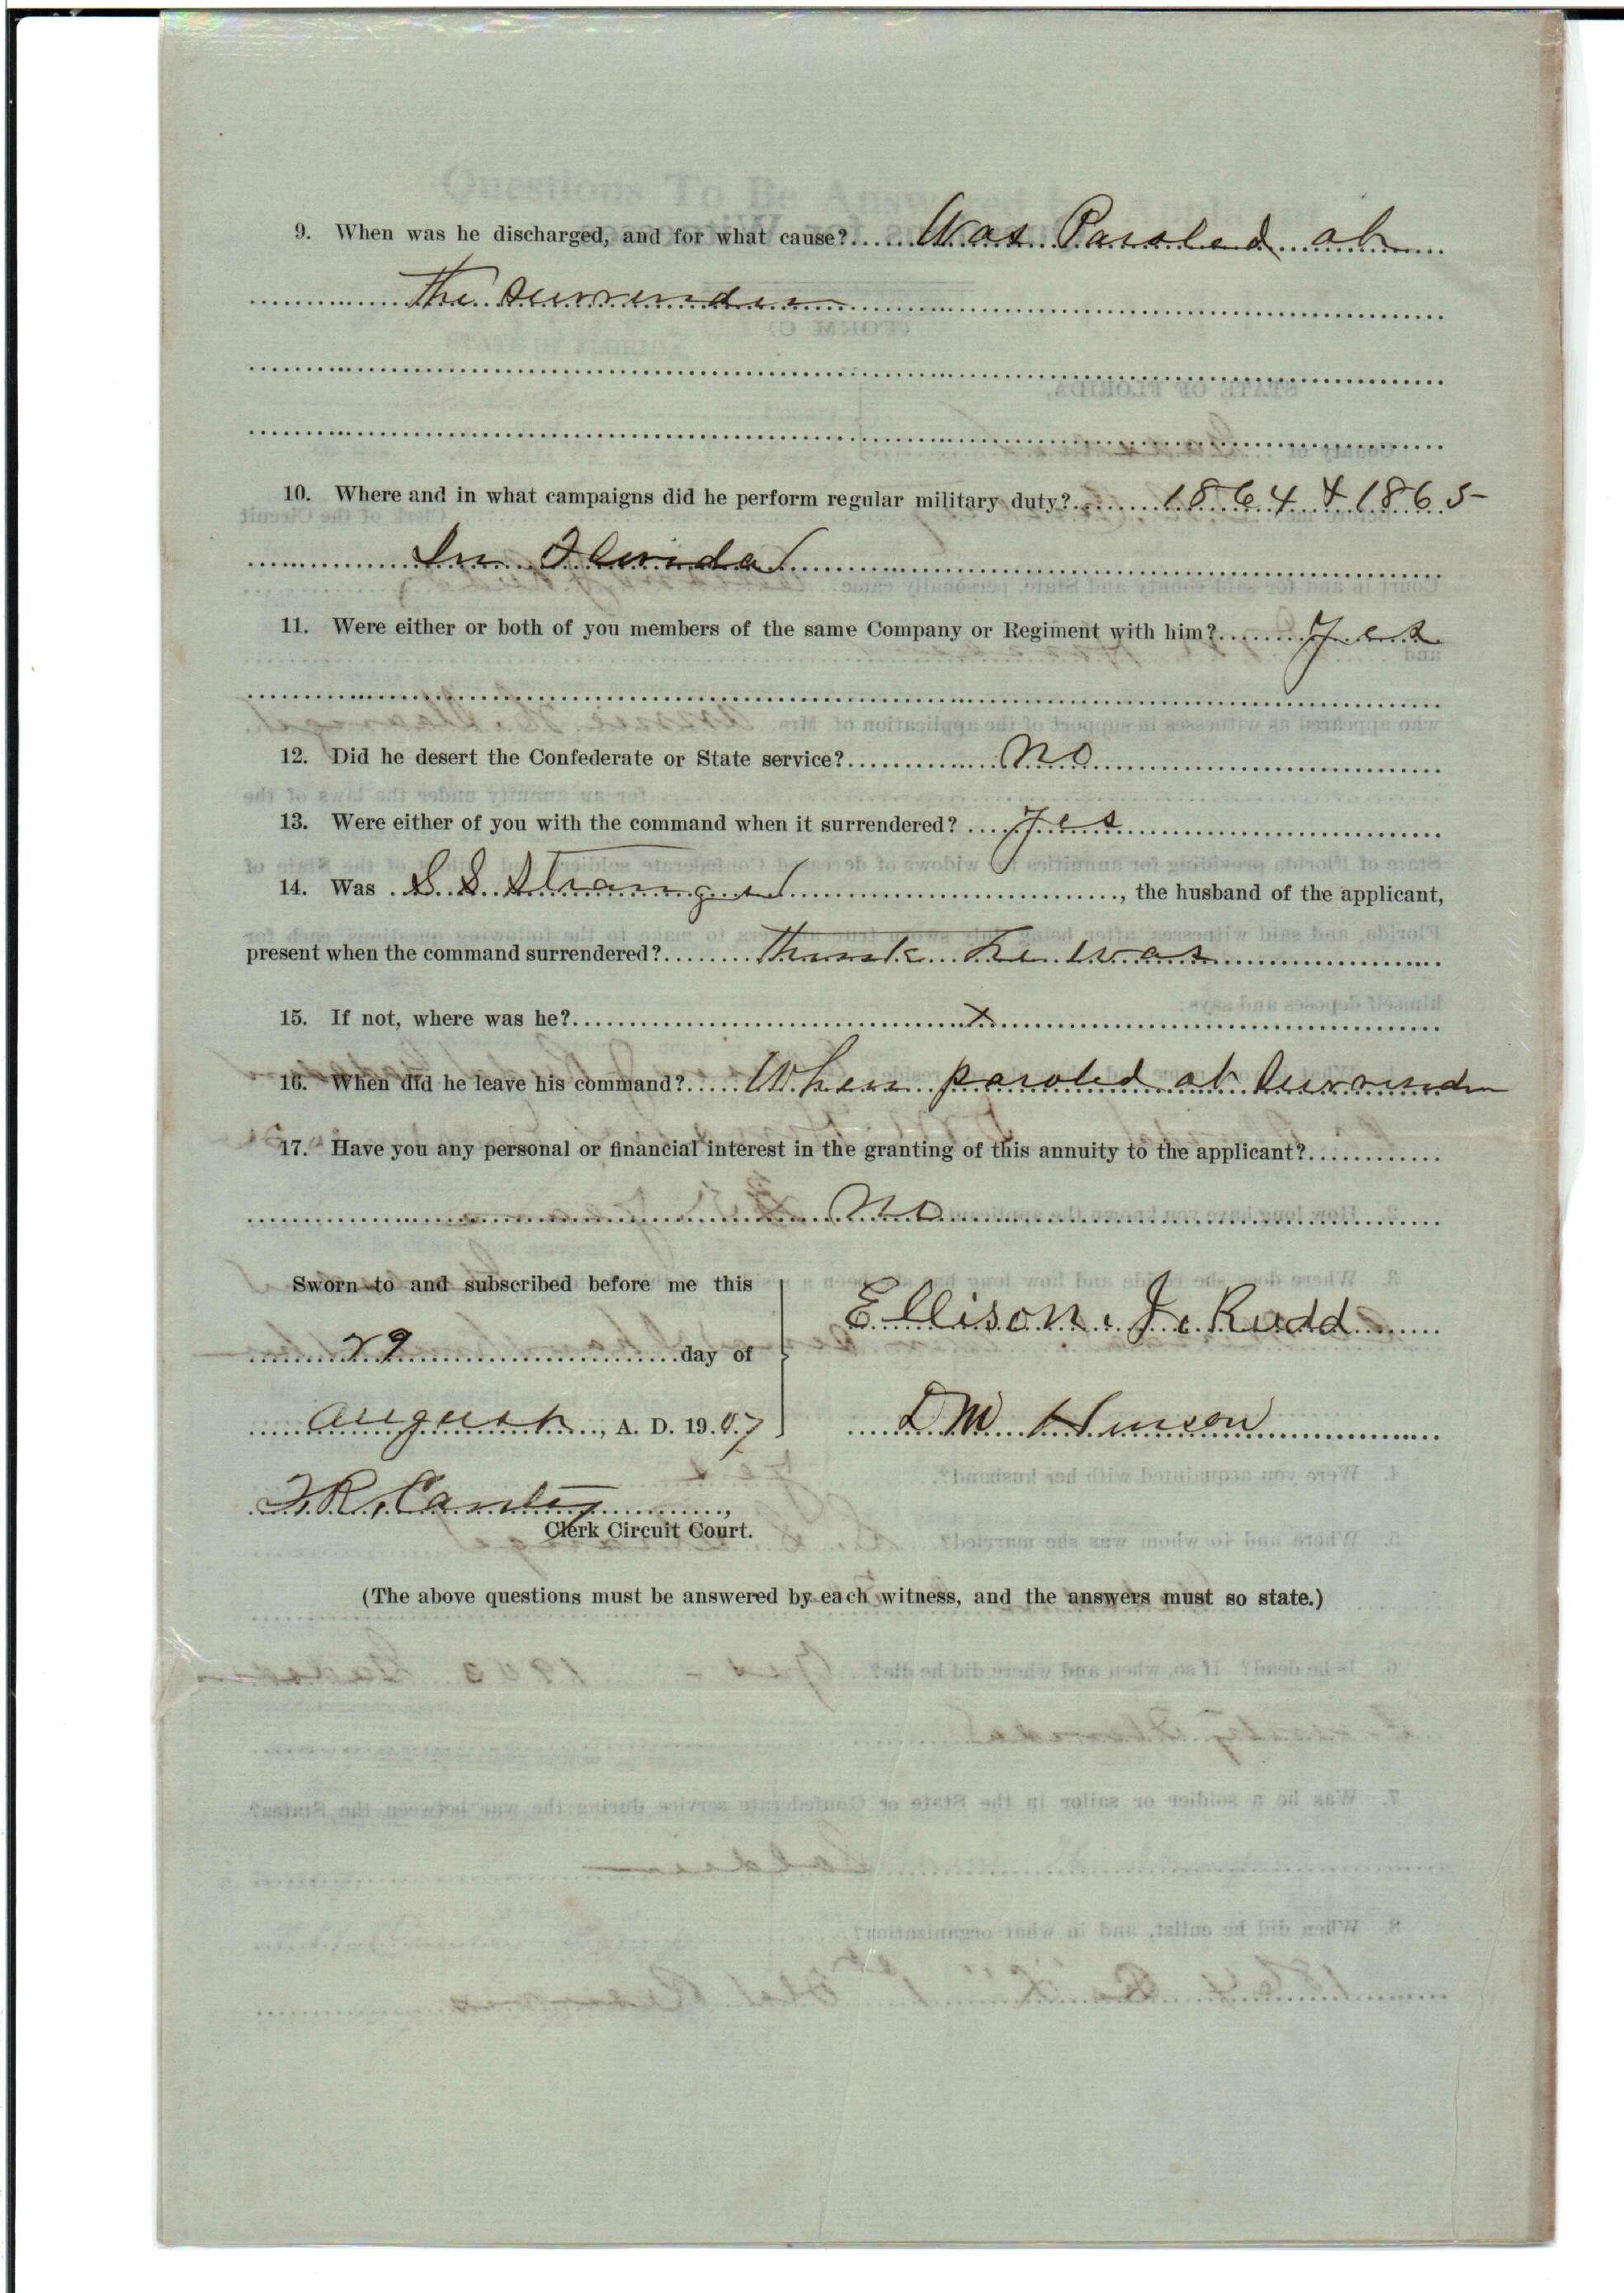 9. When was he discharged, and for what cause? Was Paroled at
the surrender
10. Where and in what campaigns did he perform regular military duty? 1864 & 1865
In Florida
11. Were either or both of you members of the same Company or Regiment with him? Yes
12. Did he desert the Confederate or State service? No
13. Were either of you with the command when it surrendered? Yes
14. Was S. S. Strange, the husband of the applicant,
present when the command surrendered? Think he was
15. If not, where was he? x
16. When did he leave his command? When paroled at Surrender
17. Have you any personal or financial interest in the granting of this annuity to the applicant?
No
Sworn to and subscribed before me this
29 day of
August, A. D. 1907
Ellison. J. Rudd
D M Hinson
Clerk Circuit Court.
(The above questions must be answered by each witness, and the answers must so state.)